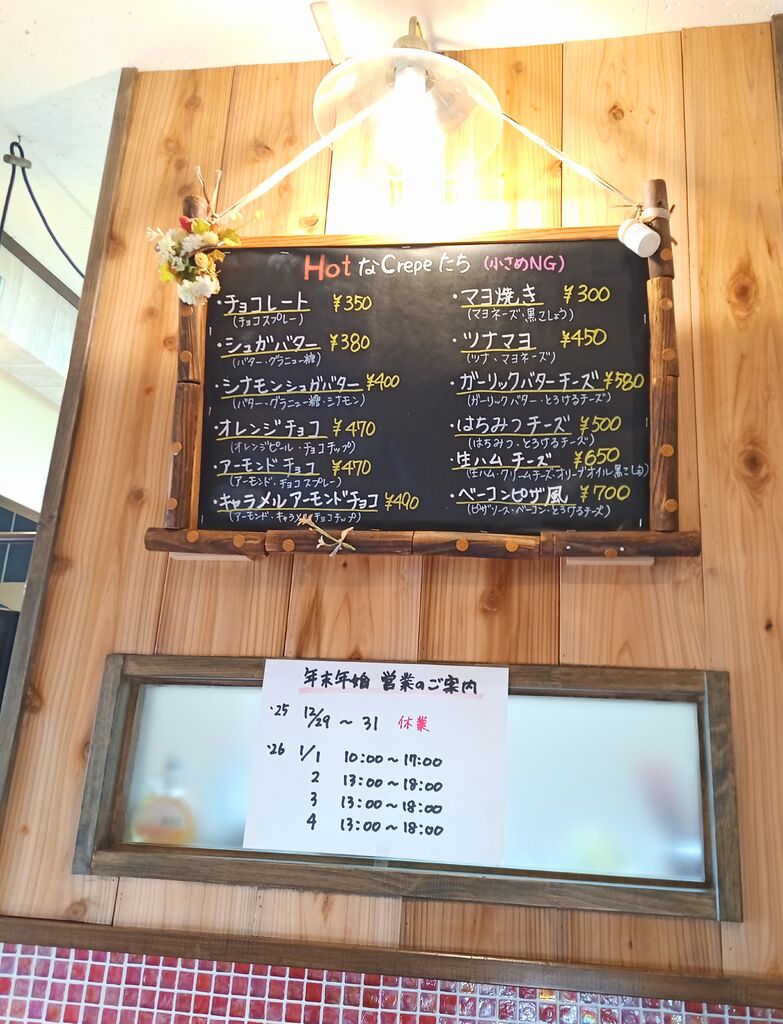 Hot なCrepeたち (小さめNG)
・チョコレート ¥350
(チョコスプレー)
・シュガバター ¥380
(バター・グラニュー糖)
・シナモンシュガバター ¥400
(バター・グラニュー糖・シナモン)
・オレンジチョコ ¥470
(オレンジピール・チョコチップ)
・アーモンドチョコ ¥470
(アーモンド、チョコスプレー)
・キャラメルアーモンドチョコ ¥490
(アーモンド・キャラメル・チョコチップ)
・マヨ焼き ¥300
(マヨネーズ・黒こしょう)
・ツナマヨ ¥450
(ツナ、マヨネーズ)
・ガーリックバターチーズ ¥580
(ガーリックバター・とろけるチーズ)
・はちみつチーズ ¥500
(はちみつ、とろけるチーズ)
・生ハムチーズ ¥650
(生ハム・クリームチーズ・オリーブオイル・黒こしょう)
・ベーコンピザ風 ¥700
(ピザソース・ベーコン・とろけるチーズ)
年末年始 営業のご案内
'25 12/29 ~ 31 休業
'26 1/1 10:00~17:00
2 13:00~18:00
3 13:00~18:00
4 13:00~18:00